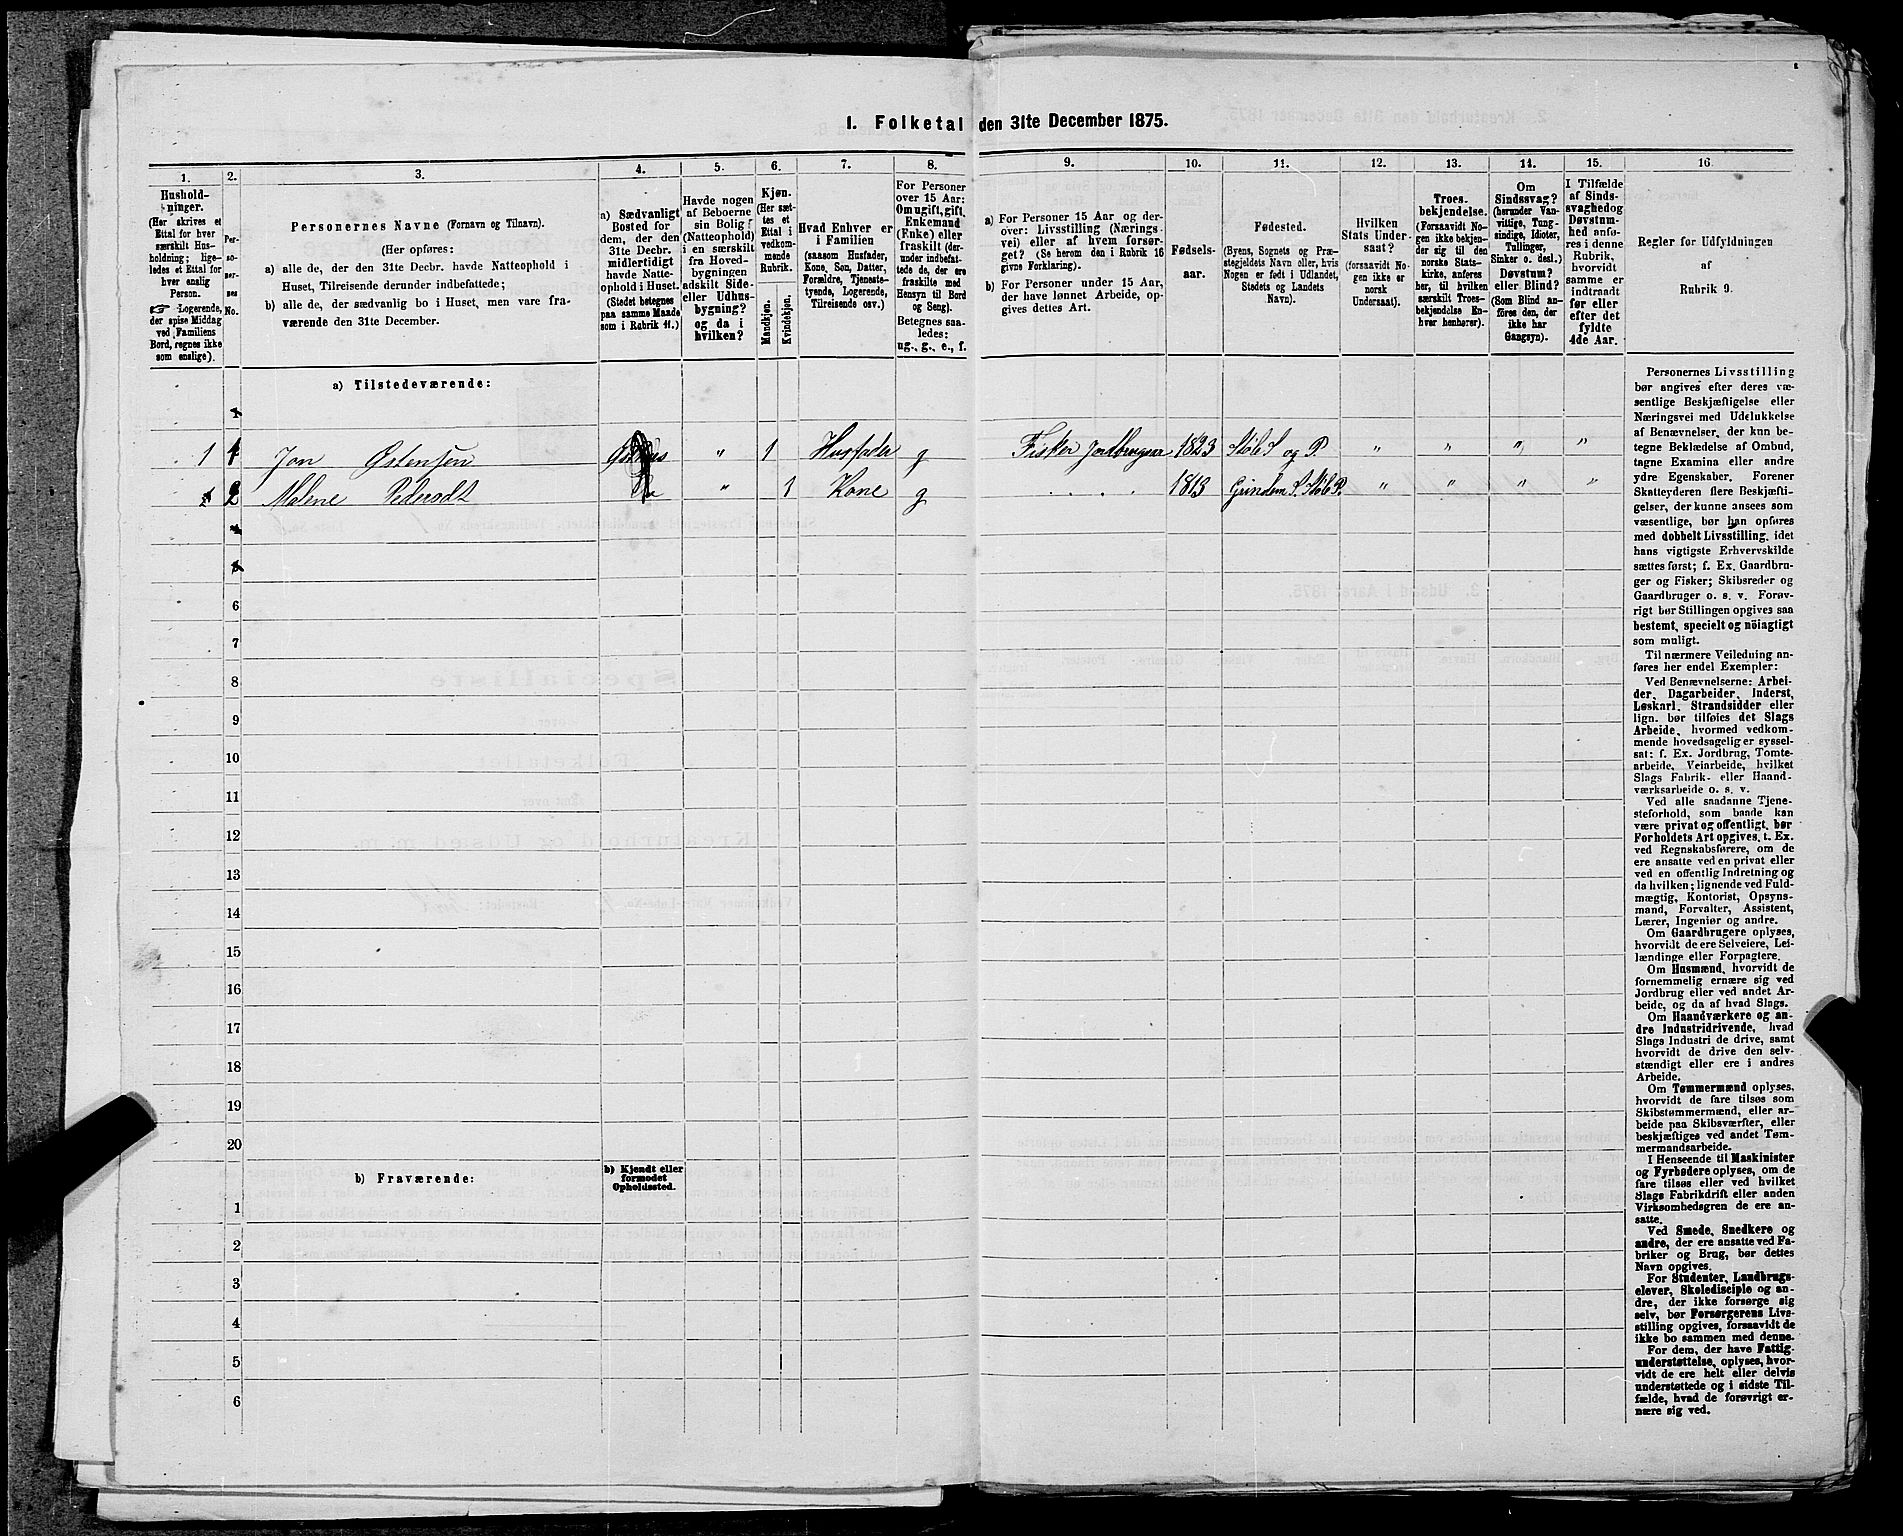 1. Folketal den 31te December 1875.
1. 2. 3. 4. 5. 6. 7. 8. 9. 10. 11. 12. 13. 14. 15. 16
Hushold-
ninger.
(Her skrives et
Ettal for hver
særskilt Hus-
holdning; lige-
ledes et Ettal for
hver enslig
Person.
☞ Logerende,
der spise Middag
ved Familiens
Bord, regnes ikke
som enslige).
Per-
so-
ner-
nes
No.
Personernes Navne (Fornavn og Tilnavn).
(Her opføres:
a) alle de, der den 31te Decbr. havde Natteophold i
Huset, Tilreisende derunder indbefattede;
b) alle de, der sædvanlig bo i Huset, men vare fra-
værende den 31te December.
a) Sædvanligt
Bosted for
dem, der den
31te Decbr.
midlertidigt
havde Natte-
ophold i Huset.
(Stedet betegnes
paa samme Maade
som i Rubrik 11.)
Havde nogen
af Beboerne
sin Bolig
(Natteophold)
i en særskilt
fra Hoved-
bygningen
adskilt Side-
eller Udhus-
bygning?
og da i
hvilken?
Kjøn.
(Her sæt-
tes et
Ettal i
vedkom-
mende
Rubrik.
Mandkjøn.
Kvindekjøn.
Hvad Enhver er
i Familien
(saasom Husfader,
Kone, Søn, Datter,
Forældre, Tjeneste-
tyende, Logerende,
Tilreisende osv.)
For Personer
over 15 Aar:
Om ugift, gift,
Enkemand
(Enke) eller
fraskilt (der-
under indbefat-
tede de, der ere
fraskilte med
Hensyn til Bord
og Seng).
Betegnes saa-
ledes:
ug., g., e., f.
a) For Personer 15 Aar og der-
over: Livsstilling (Nærings-
vei) eller af hvem forsør-
get? (Se herom den i Rubrik 16
givne Forklaring).
b) For Personer under 15 Aar,
der have lønnet Arbeide, op-
gives dettes Art.
Fødsels-
aar.
Fødested.
(Byens, Sognets og Præ-
stegjeldets Navn eller, hvis
Nogen er født i Udlandet,
Stedets og Landets
Navn).
Hvilken
Stats Under-
saat?
(forsaavidt No-
gen ikke er
norsk
Undersaat).
Troes-
bekjendelse.
(Forsaavidt No-
gen ikke bekjen-
der sig til den
norske Stats-
kirke, anføres
her, til hvilken
særskilt Troes-
bekjendelse En-
hver henhører).
Om
Sindssvag?
(herunder Van-
vittige, Tung-
sindige, Idioter,
Tullinger,
Sinker o. desl.)
Døvstum?
eller Blind?
(Som Blind an-
føres den, der
ikke har
Gangsyn).
I Tilfælde
af Sinds-
svaghed og
Døvstum-
hed anfø-
res i denne
Rubrik,
hvorvidt
samme er
indtraadt
før eller
efter det
fyldte
4de Aar.
Regler for Udfyldningen
af
Rubrik 9.
a) Tilstedeværende:
1
1 1 Jon Østensen " 1 Husfader g Fisker Jordbruger 1823 Skold S og P. " " " "
2 Malene Pedersdt " 1 Kone g . . . . 1813 Grindem S. Skold P. " " " "
4
5
6
7
8
9
10
11
12
13
14
15
16
17
18
19
20
b) Fraværende:
b) Kjendt eller
formodet
Opholdssted.
1
2
3
4
5
6
Personernes Livsstilling
bør angives efter deres væ-
sentlige Beskjæftigelse eller
Næringsvei med Udelukkelse
af Benævnelser, der kun be-
tegne Beklædelse af Ombud,
tagne Examina eller andre
ydre Egenskaber. Forener
Skatteyderen flere Beskjæfti-
gelser, der kunne ansees som
væsentlige, bør han opføres
med dobbelt Livsstilling, idet
hans vigtigste Erhvervskilde
sættes først; f. Ex. Gaardbru-
ger og Fisker; Skibsreder og
Gaardbruger o. s. v. Forøv-
rigt bør Stillingen opgives saa
bestemt, specielt og nöiagtigt
som muligt.
Til nærmere Veiledning an-
føres her endel Exempler:
Ved Benævnelserne: Arbei-
der, Dagarbeider, Inderst,
Løskarl, Strandsidder eller
lign. bør tilføies det Slags
Arbeide, hvormed vedkom-
mende hovedsagelig er syssel-
sat: f. Ex. Jordbrug, Tomte-
arbeide, Veiarbeide, hvilket
Slags Fabrik- eller Haand-
værksarbeide o. s. v.
Ved alle saadanne Tjene-
steforhold, som baade kan
være privat og offentligt, bør
Forholdets Art opgives, t. Ex.
ved Regnskabsførere, om de
ere ansatte ved en privat eller
ved en offentlig Indretning og
da hvilken; lignende ved Fuld-
mægtig, Kontorist, Opsyns-
mand, Forvalter, Assistent,
Lærer, Ingeniør og andre.
Om Gaardbrugere oplyses,
hvorvidt de ere Selveiere, Lei-
lændinge eller Forpagtere.
Om Husmænd, hvorvidt de
fornemmelig ernære sig ved
Jordbrug eller ved andet Ar-
beide, og da af hvad Slags.
Om Haandværkere og an-
dre Industridrivende, hvad
Slags Industri de drive, samt
hvorvidt de drive den selv-
stændigt eller ere i andres
Arbeide.
Om Tømmermænd oplyses,
hvorvidt de fare tilsøs som
Skibstømmermænd, eller ar-
beide paa Skibsværfter, eller
beskjæftiges ved andet Tøm-
mermandsarbeide.
I Henseende til Maskinister
og Fyrbødere oplyses, om de
fare tilsøs eller ved hvilket
Slags Fabrikdrift eller anden
Virksomhedsgren de ere an-
satte.
Ved Smede, Snedkere og
andre, der ere ansatte ved Fa-
briker og Brug, bør dettes
Navn opgives.
For Studenter, Landbrugs-
elever, Skoledisciple og an-
dre, der ikke forsørge sig
selv, bør Forsørgerens Livs-
stilling opgives, forsaavidt de
ikke bo sammen med denne.
For dem, der have Fattig-
understøttelse, oplyses, hvor-
vidt de ere helt eller delvis
understøttede og i sidste Til-
fælde, hvad de forøvrigt er-
nære sig ved.